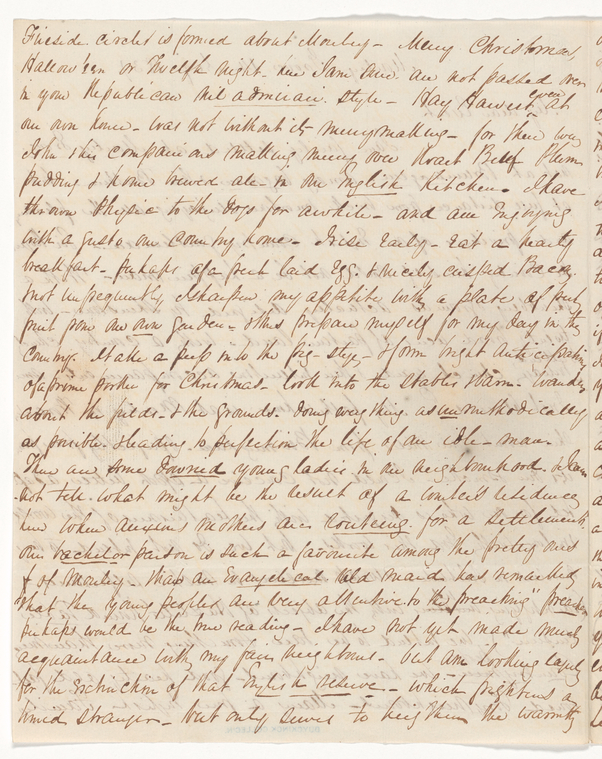 Fireside circle is formed about Mouley - Merry Christmas,
Hallow'een or Twelfth night - here I am sure are not passed over
in your Republican nil admirari style - Hay Harvest even at
our own home - was not without its merrymaking - for then were
John & his companions making merry over Roast Beef Plum
pudding & home brewed ale - in our English Kitchen. I have
thrown Physic to the Dogs for awhile - and am Enjoying
with a gusto our country home - I rise Early - Eat a hearty
breakfast - perhaps of a fresh laid Egg. & nicely crisped Bacon.
& not unfrequently, I sharpen my appetite with a plate of
fruit from our own garden - & thus prepare myself for my day in the
Country. I take a peep into the pig-stye, - & form bright anticipations
of a prime porker for Christmas - look into the stables & barn - wander
about the fields - & the grounds. doing everything as unmethodically
as possible. & leading to perfection the life of an idle-man.
There are some dowried young ladies in our neighbourhood. & I can
not tell what might be the result of a winter's residence
here when anxious mothers are for a settlement
our bachelor parson is such a favourite among the pretty ones
of Mouley - that an Evangelical old maid has remarked
"that the young people are very attentive to the preaching" preacher
perhaps would be the true reading - I have not yet made much
acquaintance with my fair neighbours - but am looking
for the extinction of that English reserve - which frightens a
timid stranger - but only serves to heighten the warmth